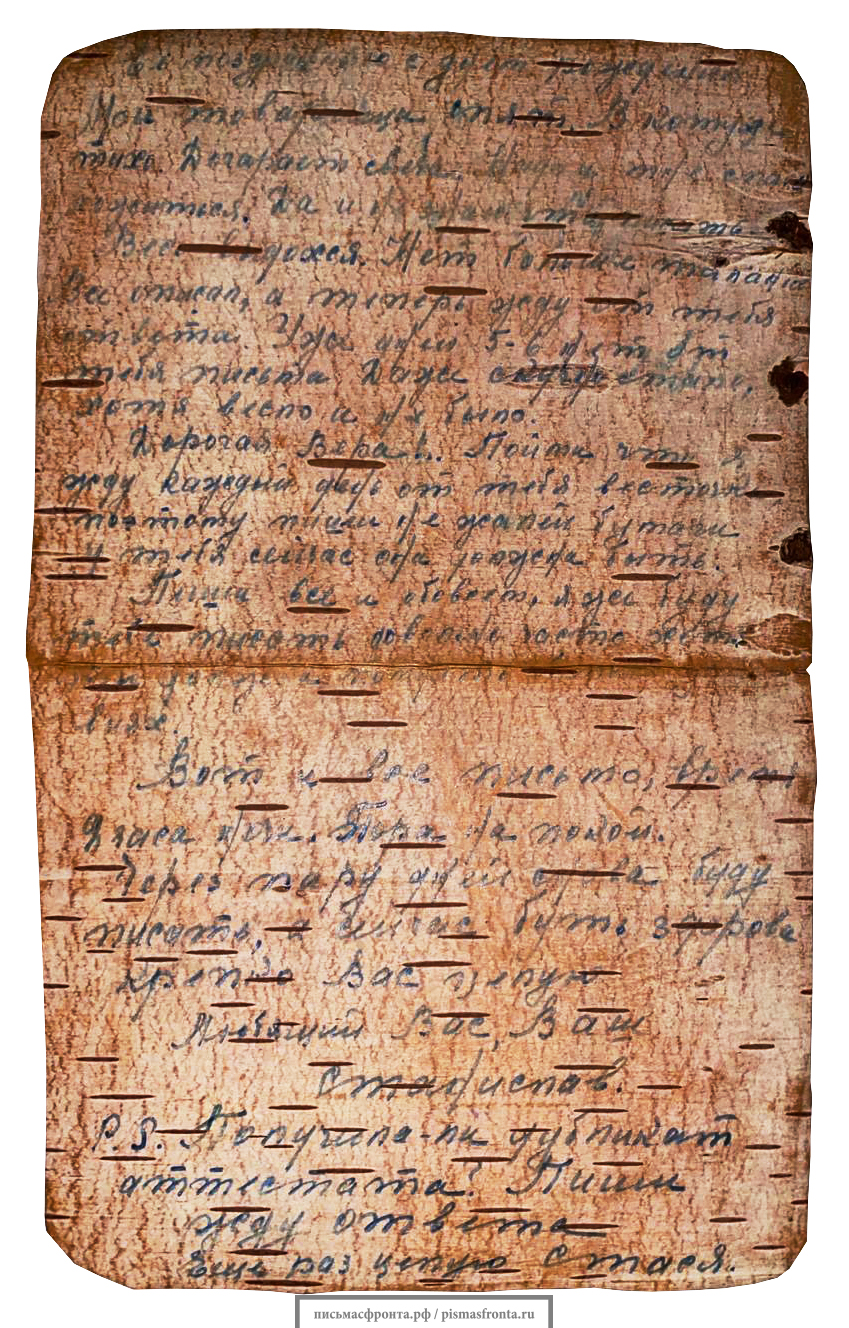 поздравляю с днем рождения
Мои товарищи спят. В кожухе
тихо. Догорает свеча. Надо и мне спать
ложиться. Да и не знаю что писать.
Весь выдохся. Нет больше таланта
Все описал, а теперь жду от тебя
ответа. Уже дней 5-6 нет от
тебя письма. Даже скучно стало,
хотя весело и не было.
Дорогая Вера!.. Пойми что я
жду каждый день от тебя весточки
поэтому пиши не жалей бумаги
у тебя сейчас она должна быть.
Пиши все и обо всем, я же буду
тебе писать довольно часто
Вот и все письмо, время
2 часа ночи. Пора на покой.
Через пару дней снова буду
писать, а сейчас будь здорова
крепко Вас целую
Любящий Вас, Ваш
Станислав.
P.S. Получила-ли дубликат
аттестата? Пиши
жду ответа
Еще раз целую Стася.
письмасфронта.рф / pismasfronta.ru